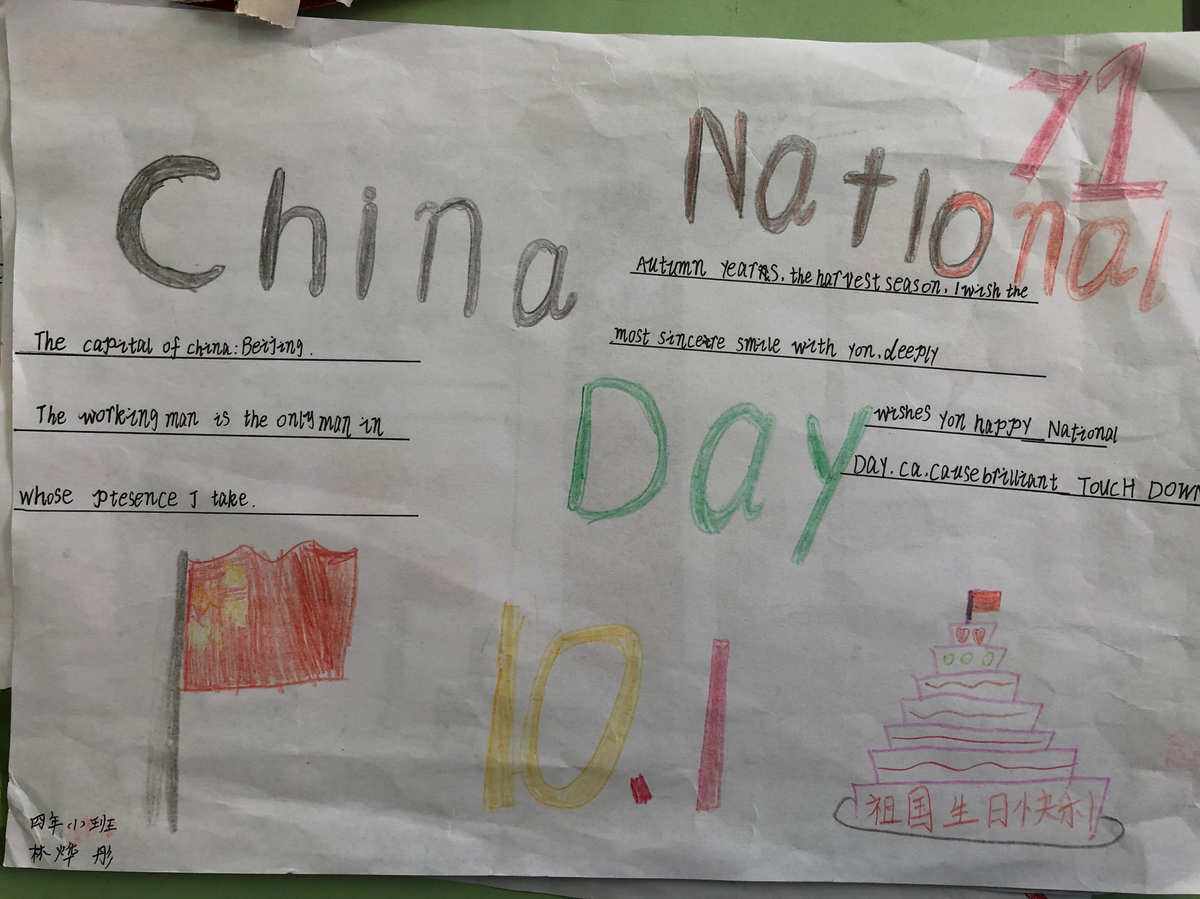 China
National
71
Autumn years, the harvest season, I wish the
The capital of china: Beijing.
most sincere smile with yon, deeply
Day
The working man is the only man in
wishes yon happy_National
Day. ca. cause brilliant_TOUCH DOWN
whose ptesence I take.
10.1
祖国生日快乐!
四年(1)班
林烨彤